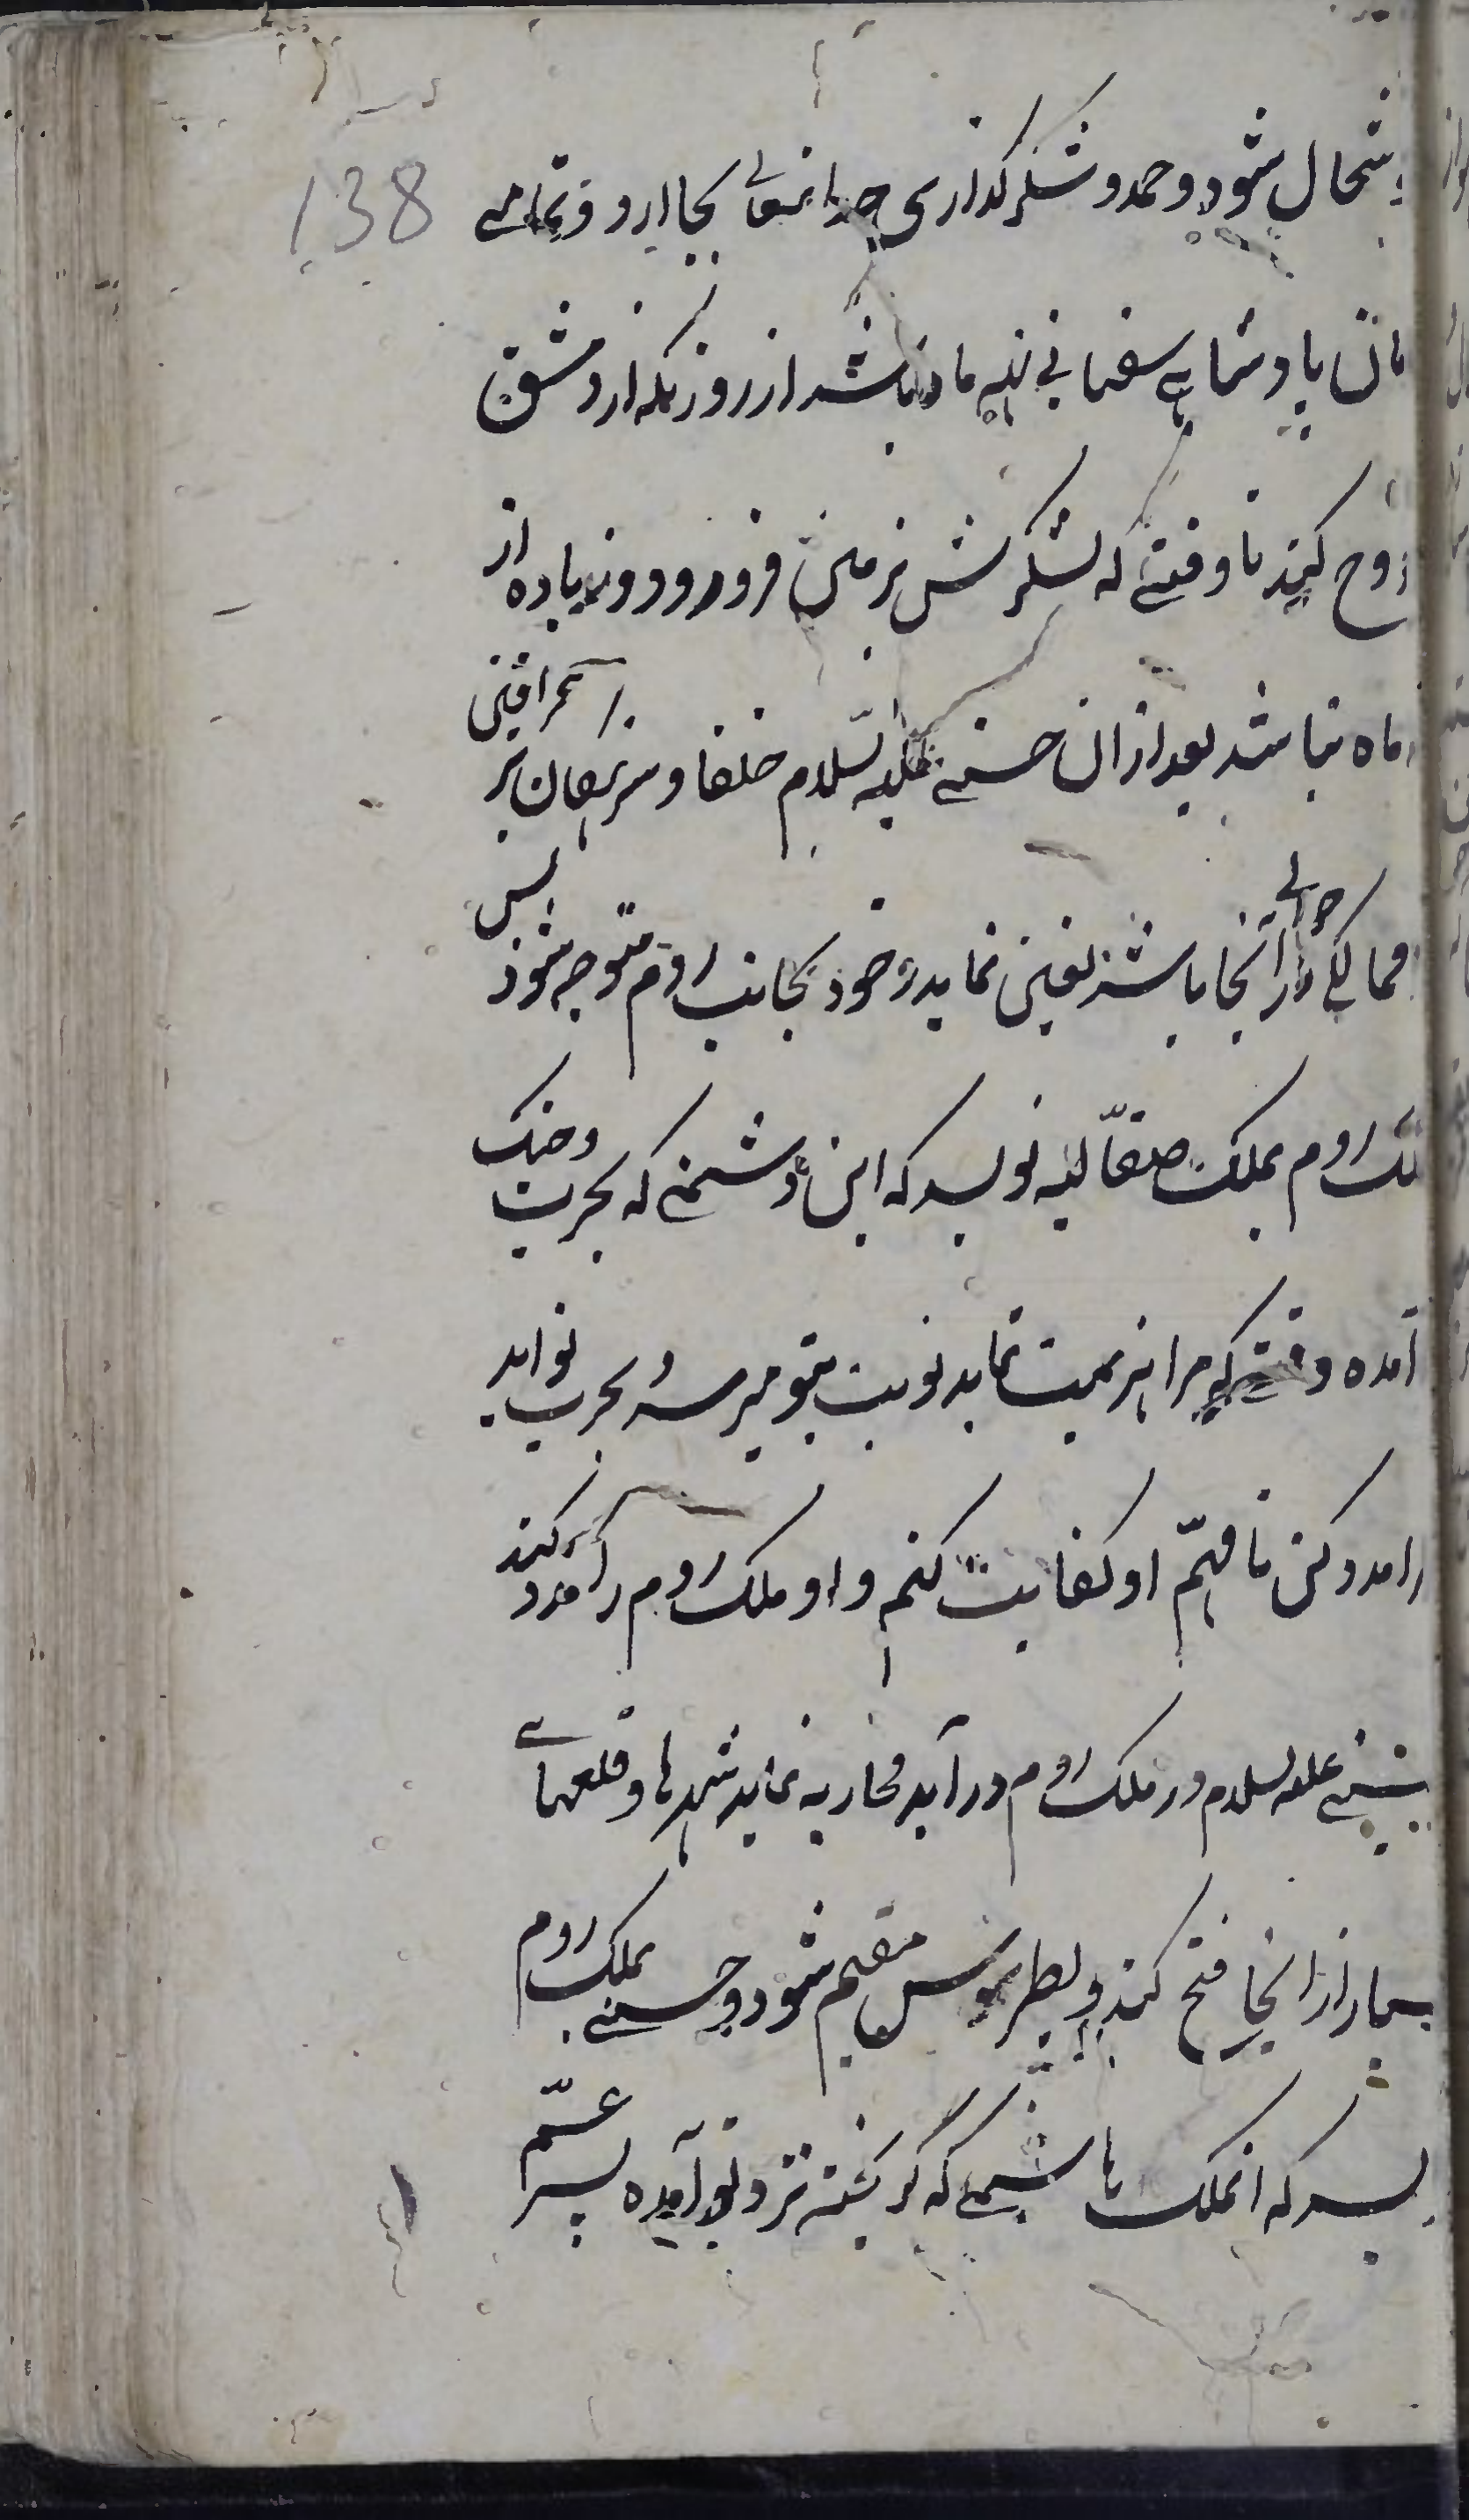 138
شحال شود و حمد و شکر گذاری خدایتعالی بجا ارد و تمامی
مان پادشاهی سفیانی نه ماه باشد از روزیکه از دمشق
روج کند تا وقتی که لشکرش بزمین فرو رود و زیاده از
ماه نباشد بعد از ان حسنی علیه السلام خلفا و سرهنکان بر
ممالکی که در آنجا باشند تعین نماید و خود بجانب روم متوجه شود پس
لک روم بملک صقالیه نویسد که این دشمنی که بحرب و جنک
آمده وقتی که مرا هزیمت نماید نوبت بتو میرسد و بحرب تو اید
را مدد کن تا مهم او کفایت کنم و او ملک روم را مدد کند
حسنی علیه السلام در ملک روم درآید محاربه نماید شهرها و قلعهای
بسیار از انجا فتح کند و بطرسوس مقیم شود و حسنی بملک روم
یسد که انملک هاشمی که گریخته نزد تو آمده پسر عم